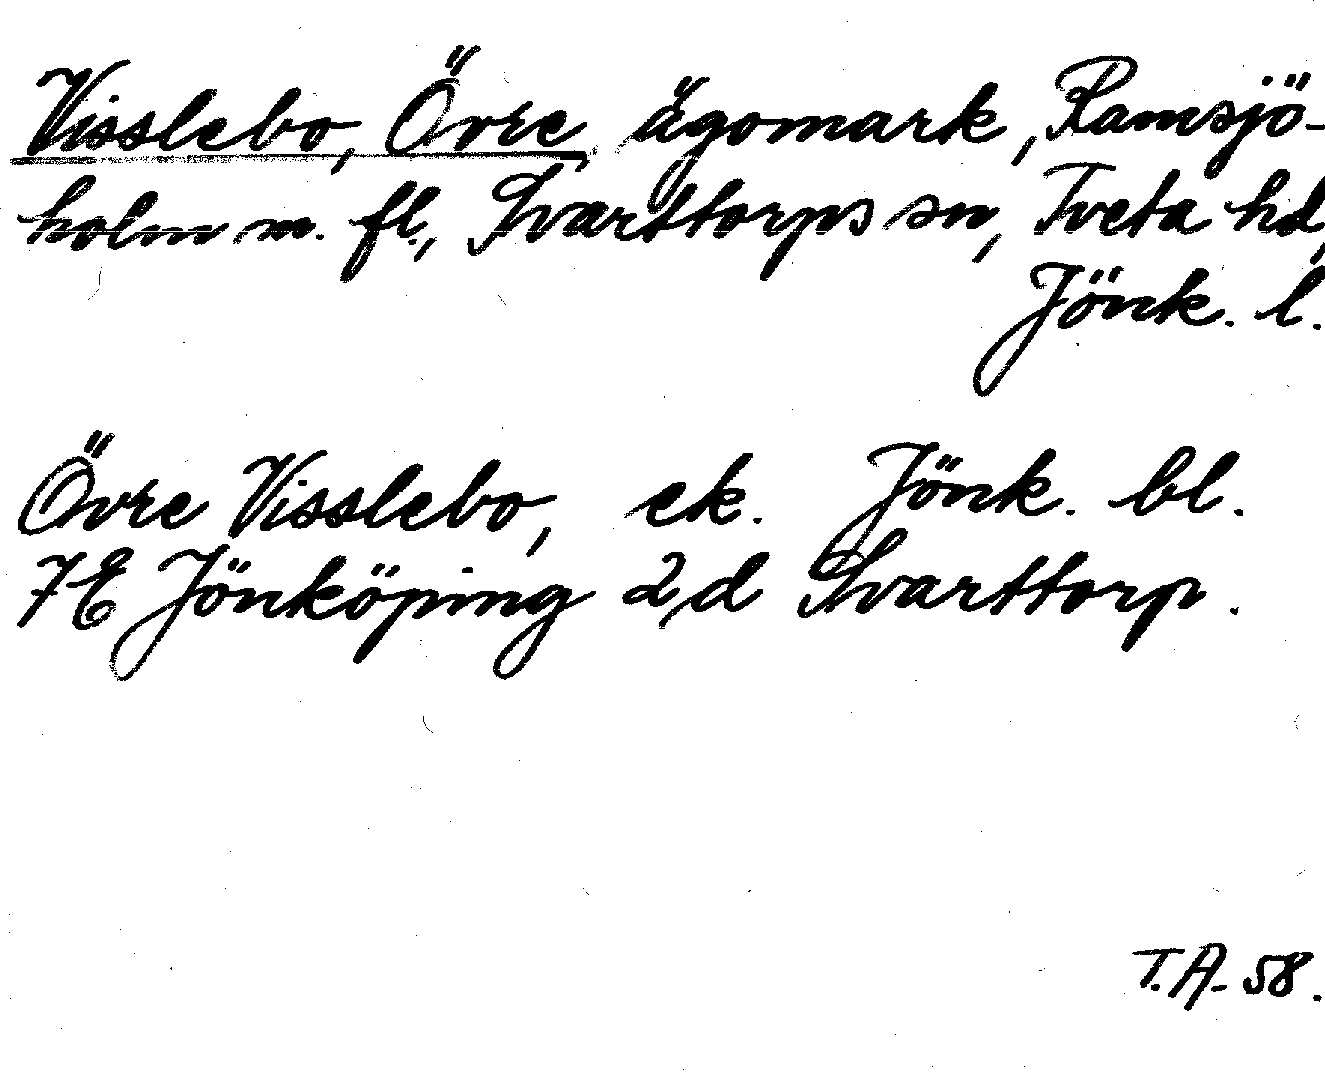 Visslebo, Övre, ägomark, Ramsjö-
holm m. fl., Svarttorps sn, Tveta hd,
Jönk. l.
Övre Visslebo, ek. Jönk. bl.
7E Jönköping 2d Svarttorp.
T.A. 58.